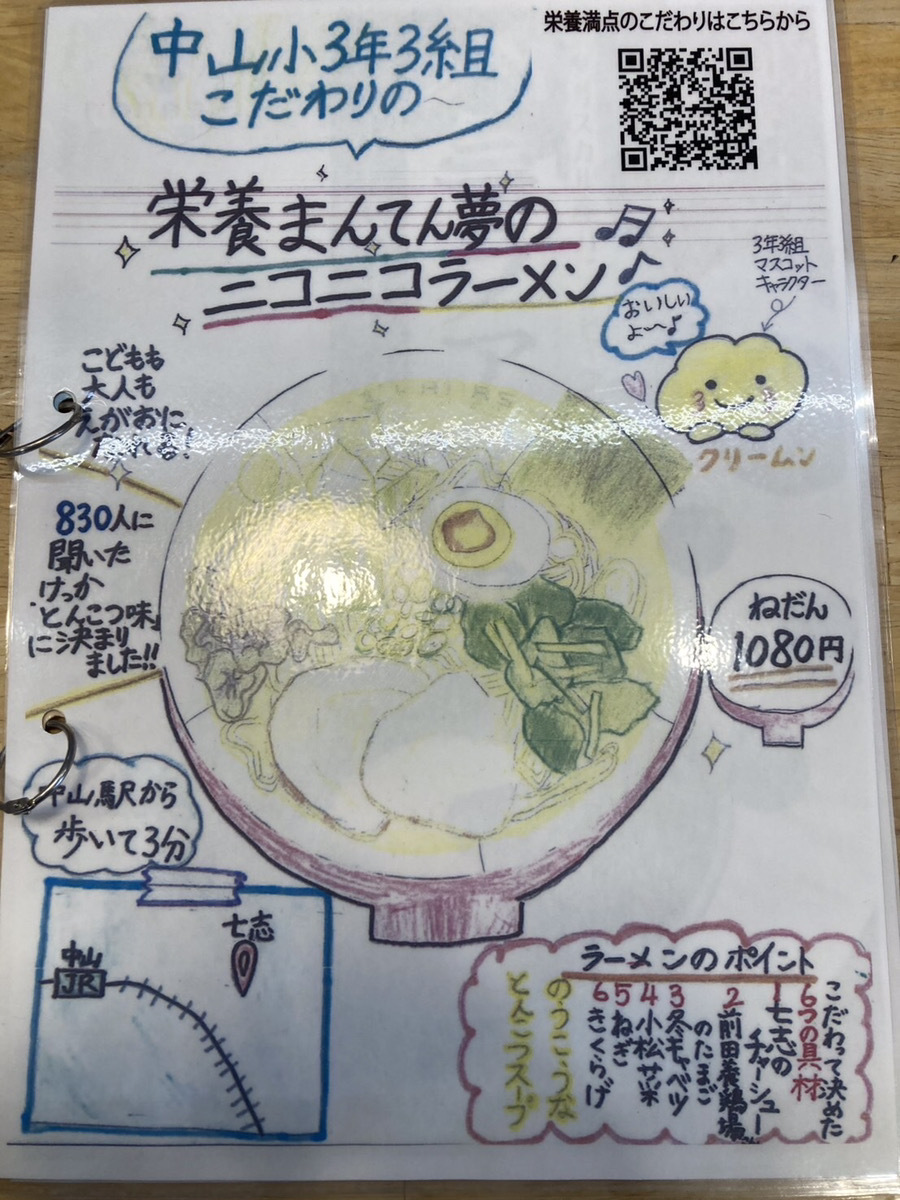 栄養満点のこだわりはこちらから
中山小3年3組
こだわりの〜
栄養まんてん夢の
ニコニコラーメン
3年3組
マスコット
キャラクター
おいしい
よ〜♪
クリームン
こどもも
大人も
えがおに
なれる!
830人に
聞いた
けっか
「とんこつ味」
に決まり
ました!!
ねだん
1080円
中山駅から
歩いて3分
七志
中山
JR
ラーメンのポイント
こだわって決めた
6つの具材
1七志の
チャーシュー
2前田養鶏場
のたまご
3冬キャベツ
4小松菜
5ねぎ
6きくらげ
のうこうな
とんこつスープ